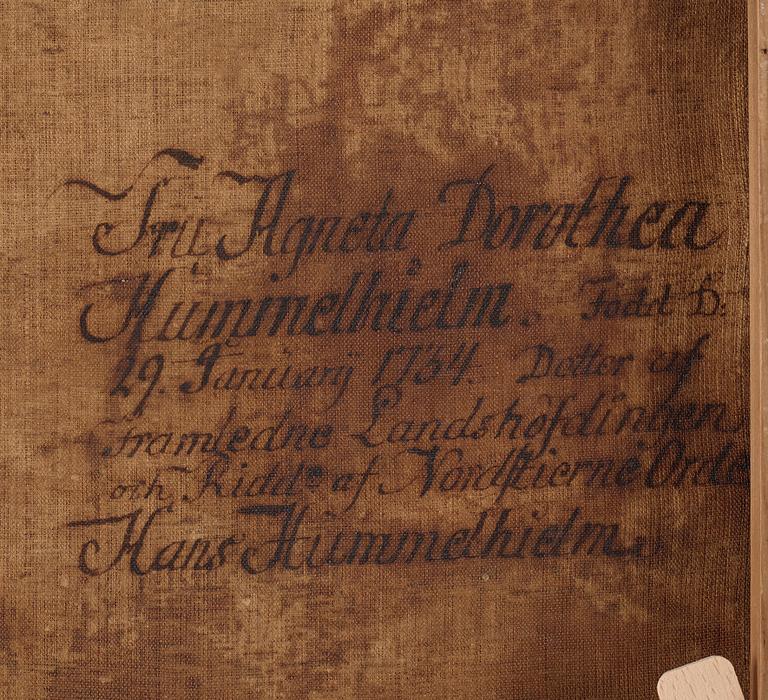 Fru Agneta Dorothea
Hummelhielm. Född D:
29. Januarÿ 1734. Dotter af
framledne Landshöfdingen
och Ridd:e af Nordstierne Orde
Hans Hummelhielm.